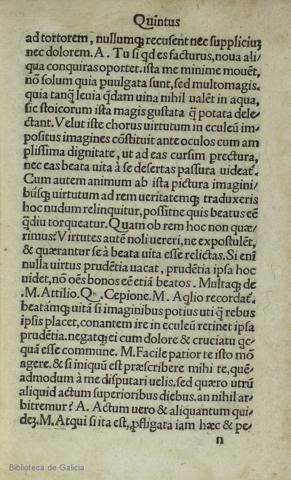 Quintus
ad tortorem, nullumqꝫ recusent nec suppliciuꝫ
nec dolorem. A. Tu si qd es facturus, noua ali/
qua conquiras oportet. ista me minime mouẽt,
nõ solum quia puulgata sunt, sed multomagis.
quia tanq̃ leuia q̃dam uina nihil ualẽt in aqua,
sic stoicorum ista magis gustata q̃ potata dele/
ctant. Velut iste chorus uirtutum in eculeũ im/
positus imagines cõstituit ante oculos cum am
plissima dignitate, ut ad eas cursim prectura,
nec eas beata uita à se desertas passura uideat᷒.
Cum autem animum ab ista pictura imagini/
busqꝫ uirtutum ad rem ueritatemqꝫ traduxeris
hoc nudum relinquitur, possitne quis beatus eẽ
q̃diu torqueatur. Quam ob rem hoc non quæ/
rimus? Virtutes autẽ noli uereri, ne expostulẽt,
& quærantur se à beata uita esse relictas. Si enĩ
nulla uirtus prudẽtia uacat, prudẽtia ipsa hoc
uidet, nõ oẽs bonos eẽ etiã beatos. Multaqꝫ de
.M. Attilio. Q. Cepione. M. Aqlio recordat᷒.
beatámqꝫ uitã si imaginibus potius uti q̃ rebus
ipsis placet, conantem ire in eculeũ retinet ipsa
prudẽtia. negatqꝫ ei cum dolore & cruciatu qc
quã esse commune. M. Facile patior te isto mo
agere. & si iniquũ est præscribere mihi te, quẽ/
admodum à me disputari uelis. sed quæro utrũ
aliquid actum superioribus diebus. an nihil ar/
bitremur? A. Actum uero & aliquantum qui/
deꝫ. M. Atqui si ita est, pfligata iam hæc & pe/
n
Biblioteca de Galicia